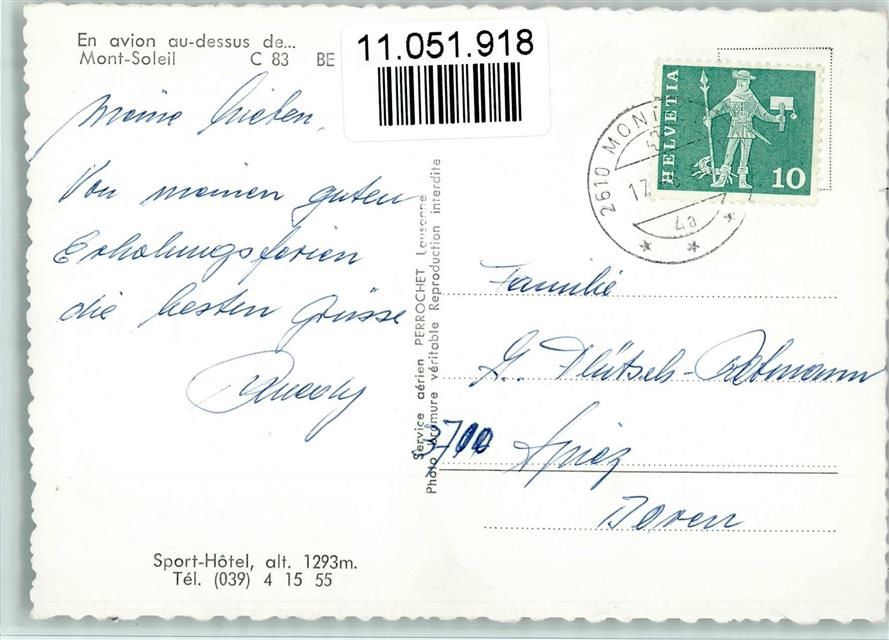 En avion au-dessus de...
Mont-Soleil C 83 BE
11.051.918
Meine Lieben,
Von meinen guten
Erholungsferien
die besten Grüsse
Service aérien PERROCHET Lausanne
Photo bromure véritable Reproduction interdite
HELVETIA
10
2610 MONT
17
4a
Familie
G.
3700 Spiez
Sport-Hôtel, alt. 1293m.
Tél. (039) 4 15 55